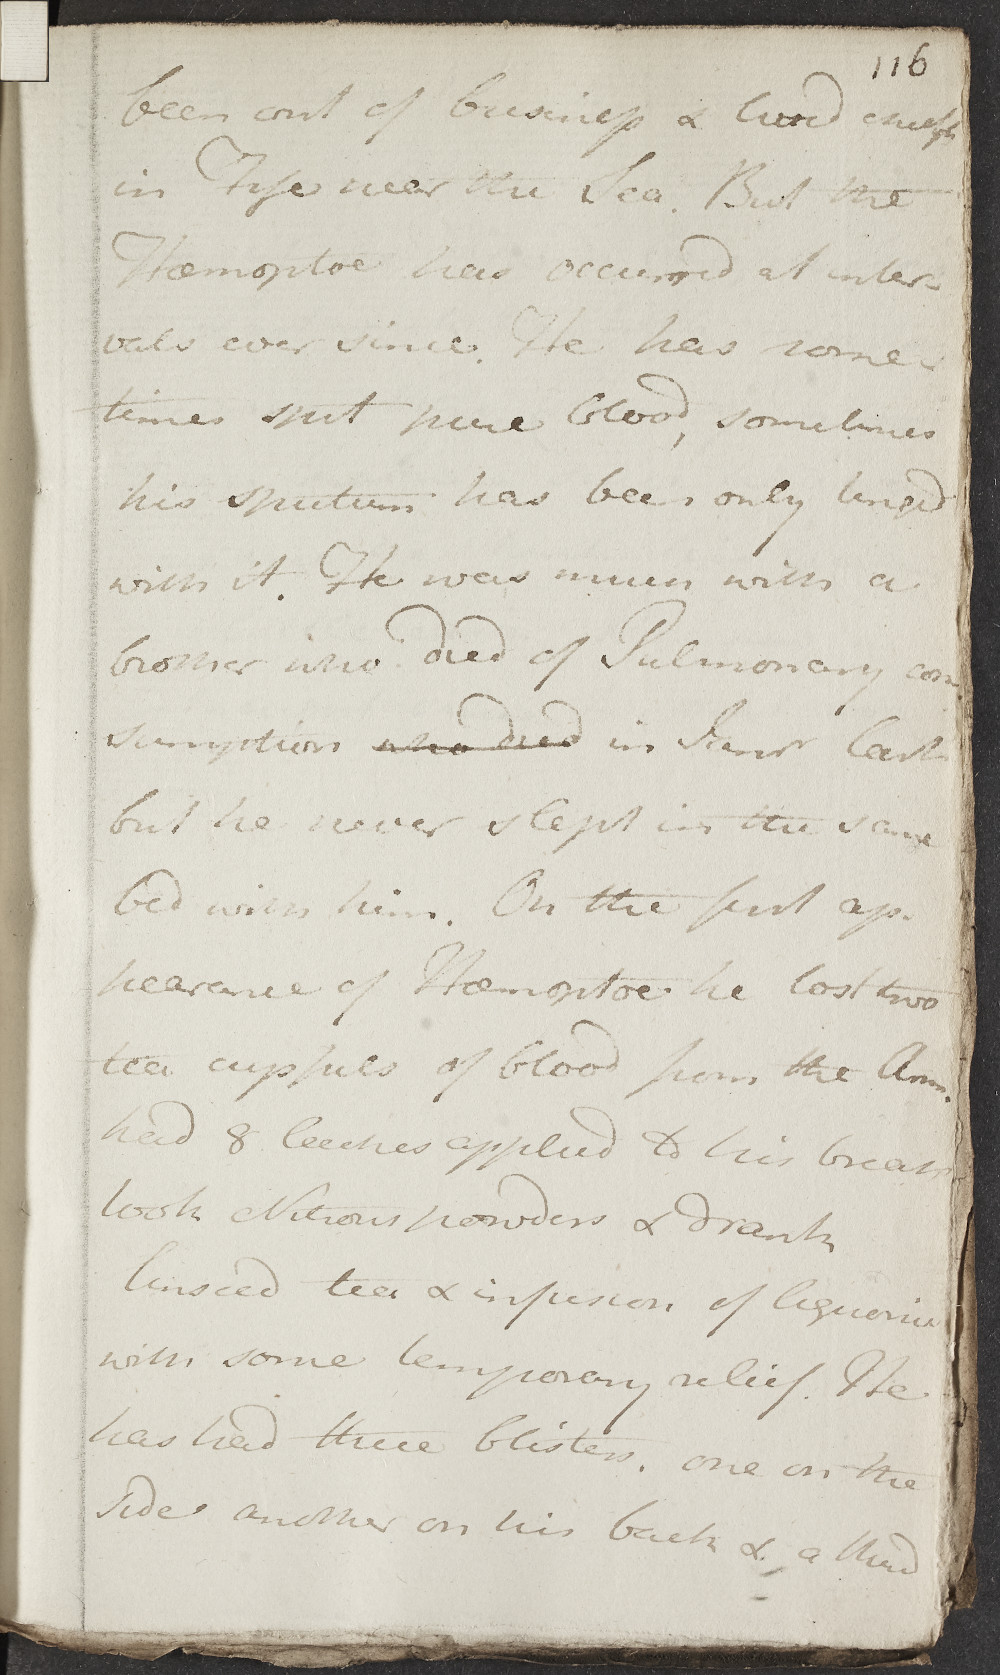 116
been out of business & lived chiefly
in Fife near the Sea. But the
Hæmoptoe has occurred at inter=
vals ever since. He has some=
times spit pure blood, sometimes
his sputum has been only tinged
with it. He was much with a
brother who died of Pulmonary con
sumption who died in Janr last
but he never slept in the same
bed with him. On the first ap.
pearance of Hæmoptoe he lost two
tea cupfuls of blood from the Arm.
had 8 leeches applied to his breast
took Nitrous powders & drank
linseed tea & infusion of liquorice
with some temporary relief. He
has had three blisters. one on the
side another on his back &, a third